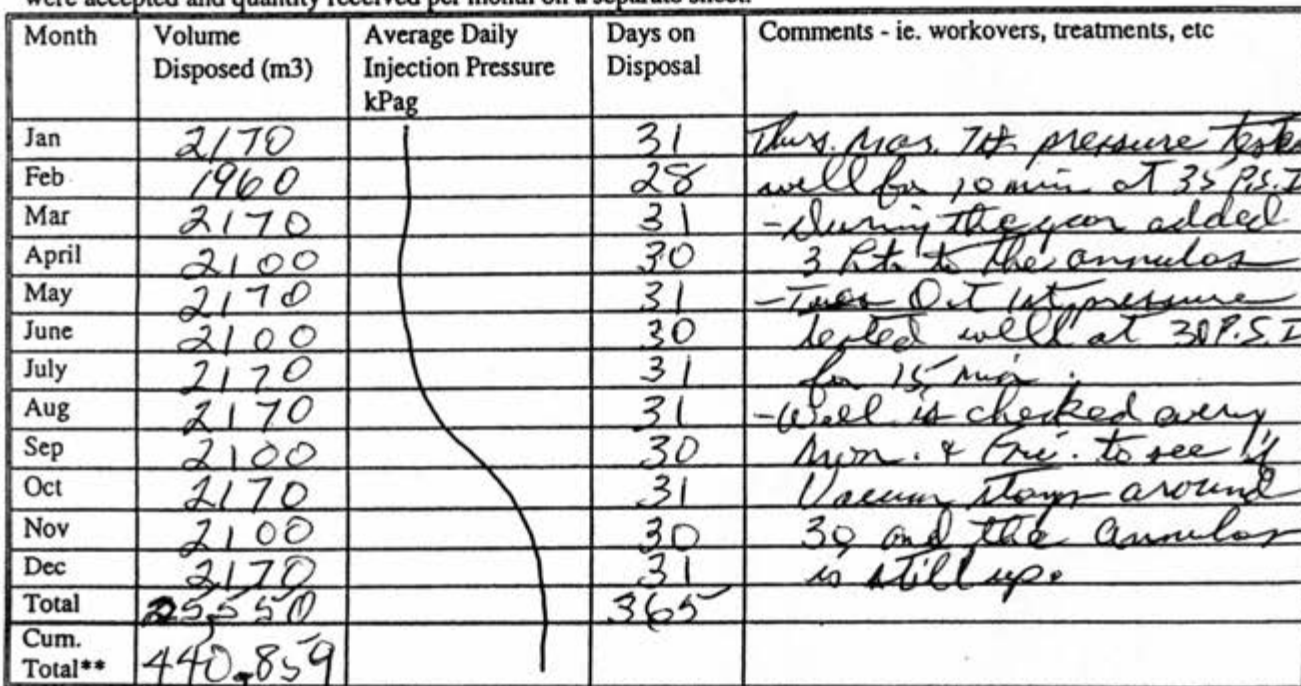 were accepted and quantity received per month on a separate sheet.
Month Volume Disposed (m3) Average Daily Injection Pressure kPag Days on Disposal Comments - ie. workovers, treatments, etc
Jan 2170 31 Thurs. Mar. 7th pressure tested
Feb 1960 28 well for 10 min at 35 P.S.I
Mar 2170 31 - During the year added
April 2100 30 3 to the annulas
May 2170 31 - Tues Oct 1st pressure
June 2100 30 tested well at 30 P.S.I
July 2170 31 for 15 min.
Aug 2170 31 - Well is checked every
Sep 2100 30 Mon. & Fri. to see if
Oct 2170 31 Vacuum stays around
Nov 2100 30 30 and the annulas
Dec 2170 31 is still up.
Total 25550 365
Cum. Total** 440,859